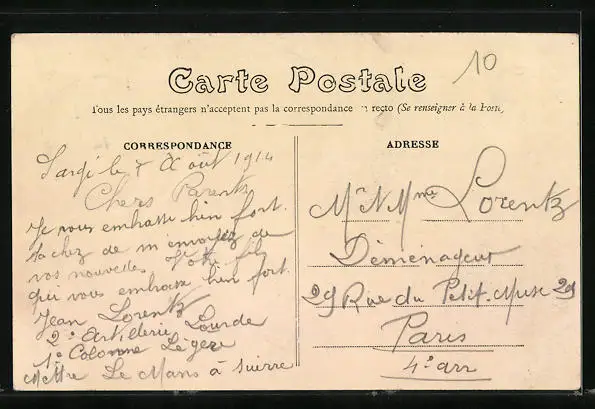 10
Carte Postale
Tous les pays étrangers n'acceptent pas la correspondance recto (Se renseigner à la Poste)
CORRESPONDANCE
ADRESSE
Sargé le 7 Août 1914
Chers Parents
Je vous embrasse bien fort.
tachez de m'envoyez de
vos nouvelles Votre fils
qui vous embrasse bien fort.
Jean Lorentz
2e Artillerie Lourde
1e Colonne Légère
Le Mans à suivre
Mr Mme Lorentz
Déménageur
29 Rue du Petit-Musc 29
Paris
4e arr